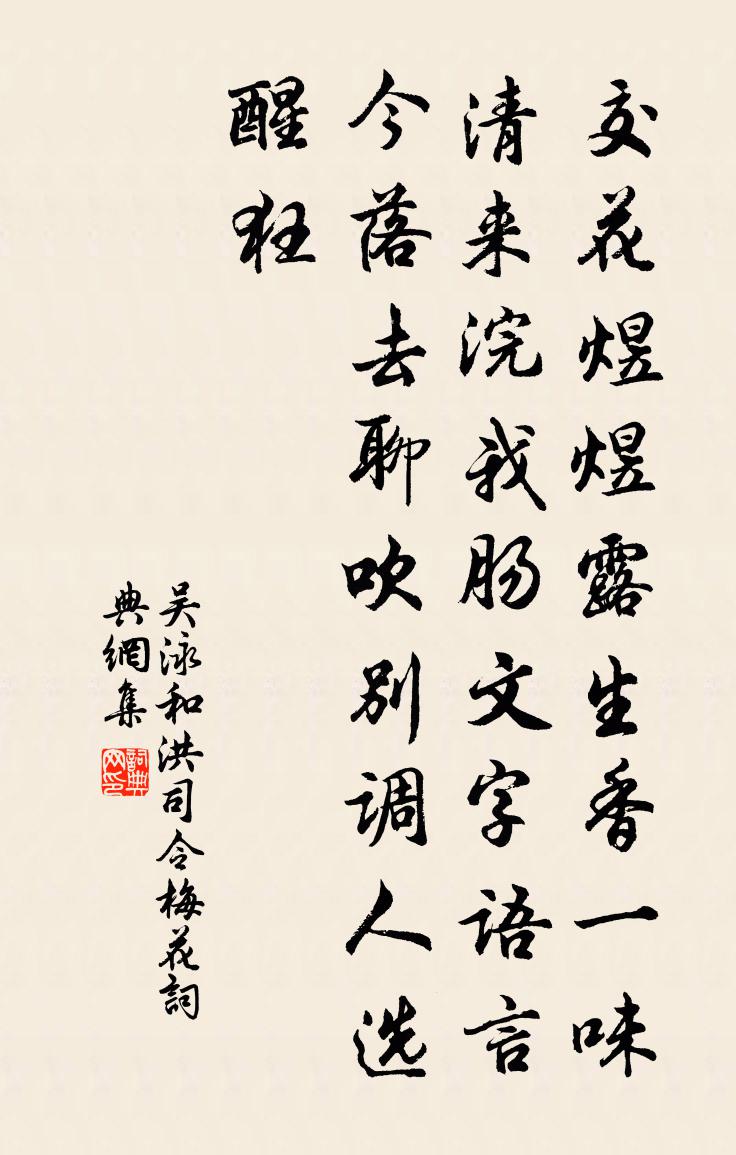 交花煜煜露生香一味
清来浣我肠文字語言
今落去聊吹别调人选
醒狂
吴泳和洪司令梅花詞
典網集
詞典网印